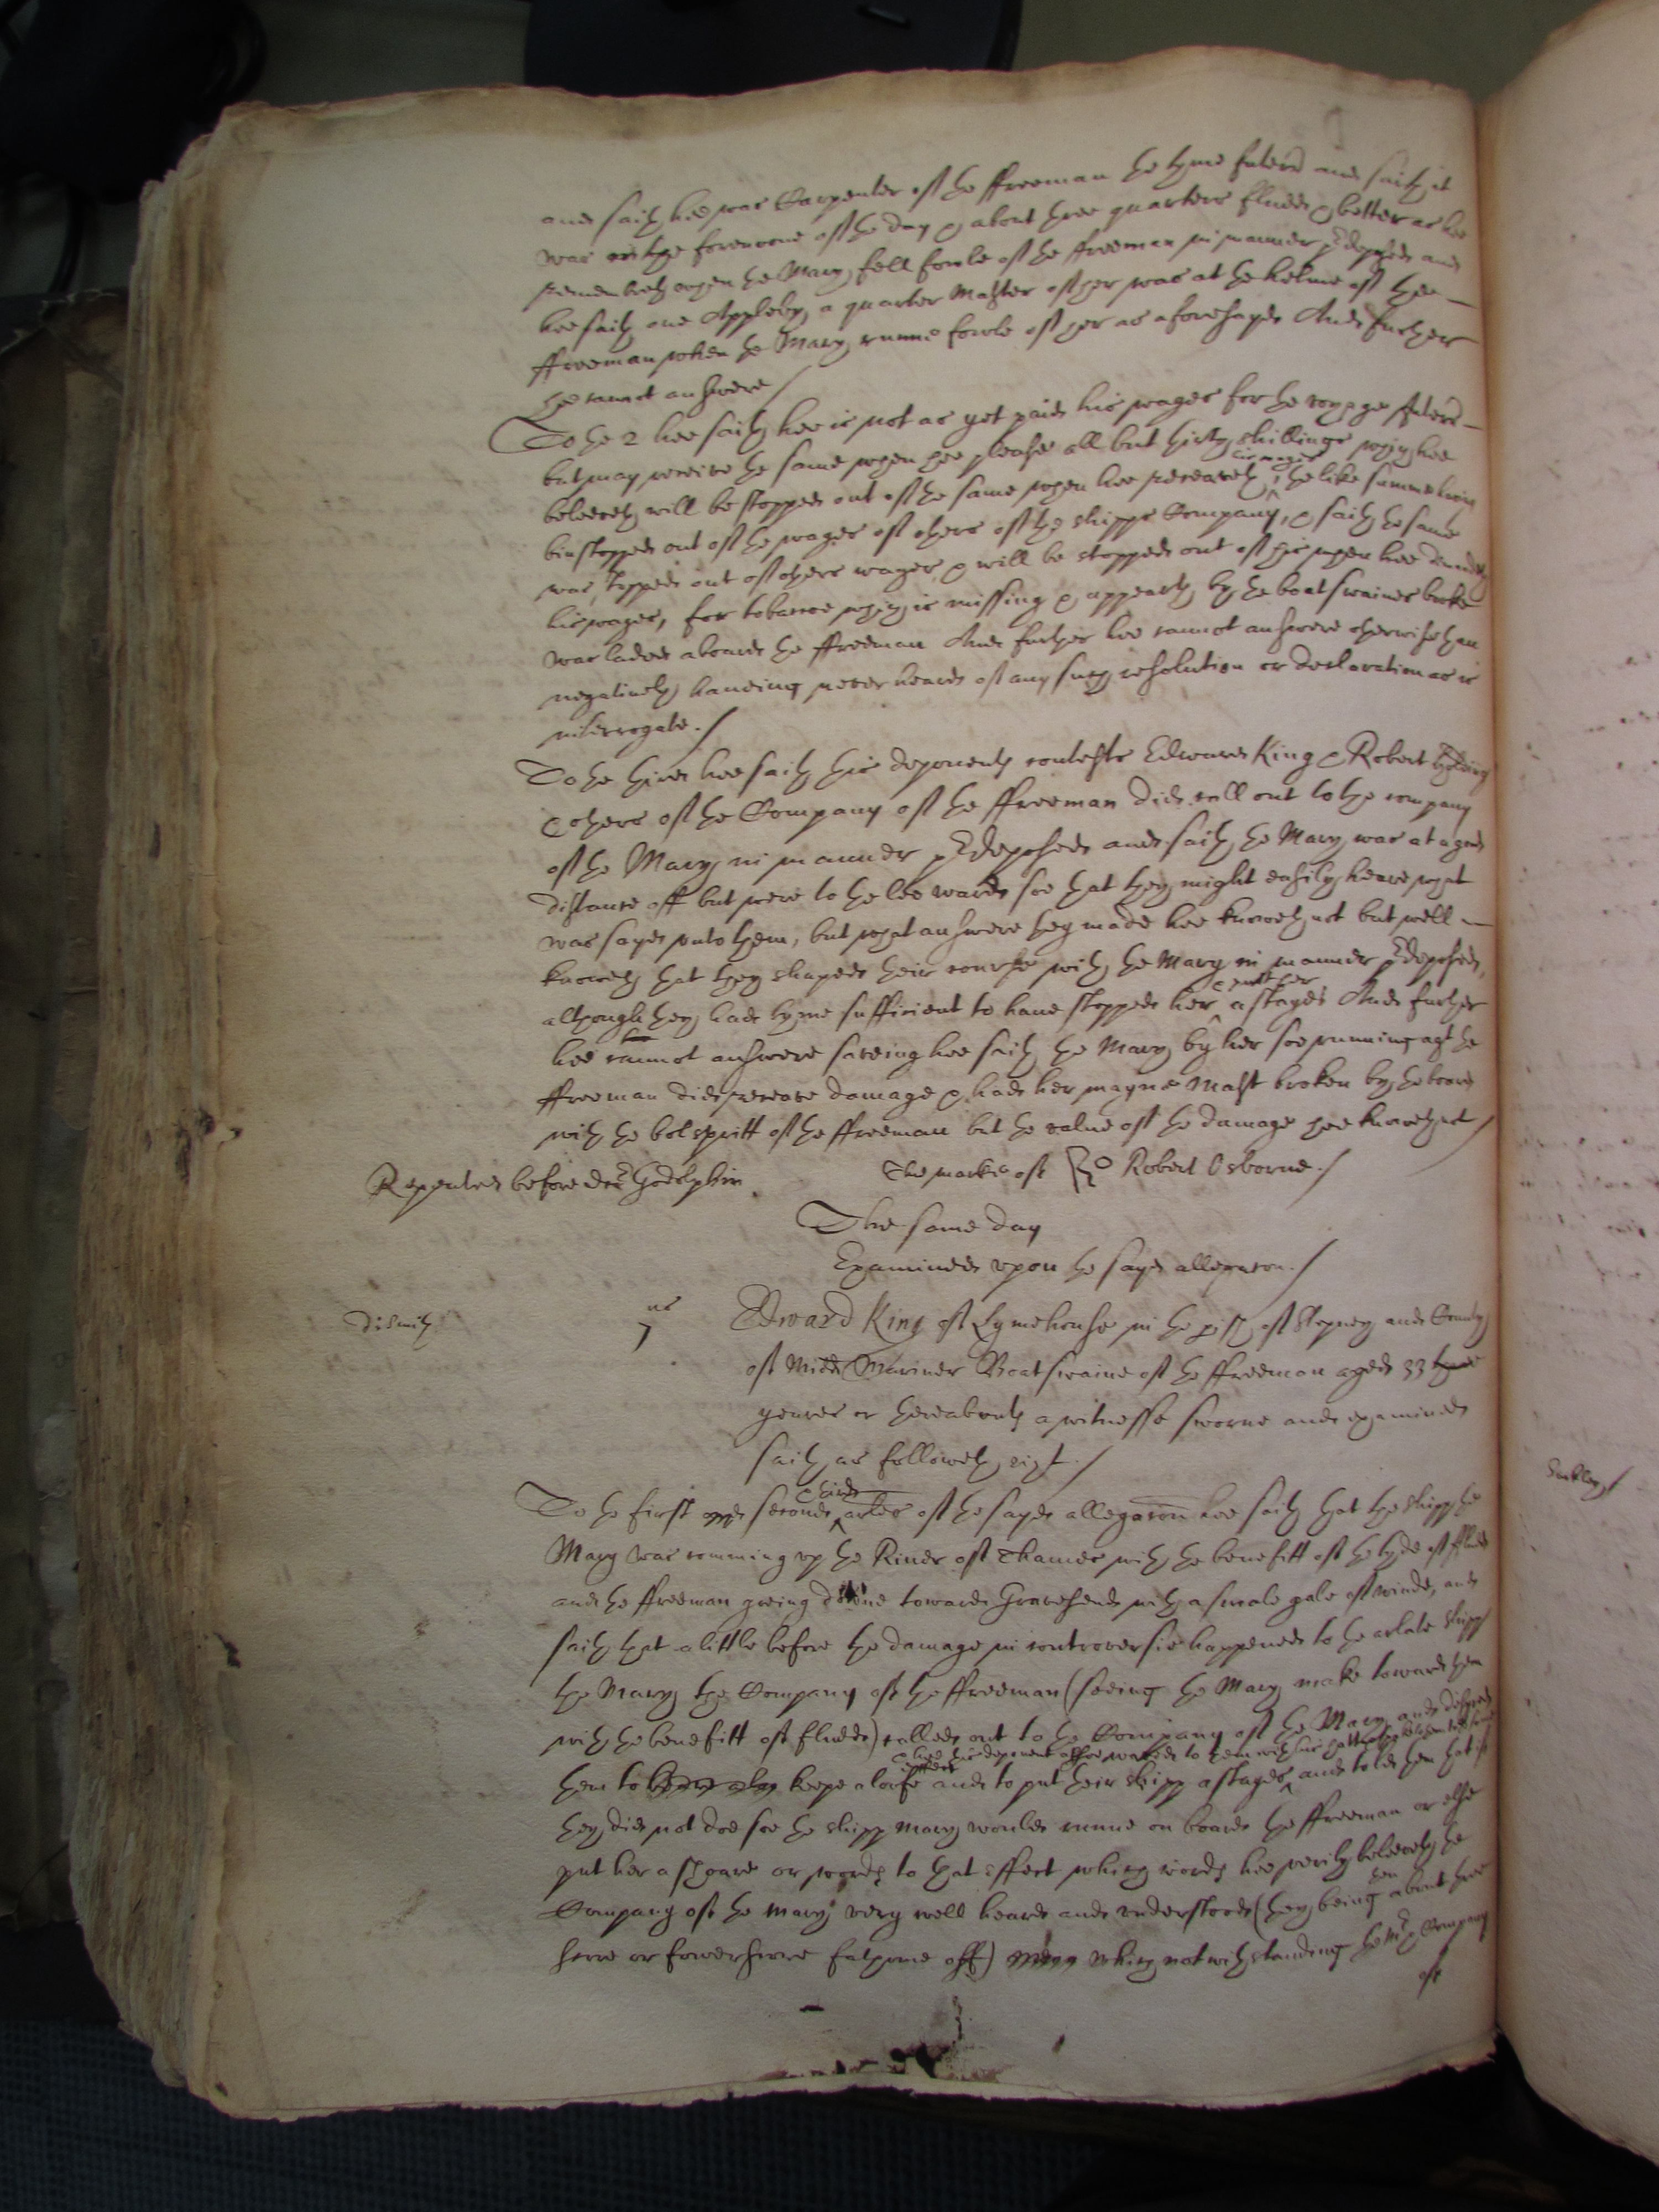 and saith hee was Carpenter of the ffreeman the tyme Interr and saith it
was in the forenoone of the day & about three quarters fludd & better as hee
remembreth when the Mary fell fowle of the ffreeman in manner predeposed and
hee saith one Appleby a quarter Master of her was at the helme of the
ffreeman when the Mary runne fowle of her as aforesayd And further
hee cannot answere /
To the 2 hee saith hee is not as yet paid his wages for the voyage Interr
but may receive the same when hee please all but thirty shillings which hee
beleeveth will be stopped out of the same when hee receaveth his wages, the like summe having
bin stopped out of the wages of others of the shipps Company, & saith the same
was stopped out of others wages & will be stopped out of his when hee
his wages, for tobaccoe which is missing & appeareth by the boatswaines booke
was laden aboard the ffreeman And further hee cannot answere otherwise than
negatively haveing never heard of any such resolution or declaration as is
interrogate. /
To the third hee saith this deponents contests Edward King & Robert
& others of the Company of the ffreeman did call out to the company
of the Mary in manner predeposed and saith the Mary was at a good
distance off but were to the lee ward soe that they might easily heare what
was sayd unto them, but what answere they made hee knoweth not but well
knoweth that they shaped their course with the Mary in manner predeposed,
although they had tyme sufficient to have stopped her & put her a stayes And further
hee cannot answere saveing hee saith the Mary by her soe running agt the
ffreeman did receave damage & had her mayne Mast broken by the
with the boltspritt of the ffreeman but the value of the damage hee knoweth not /
Repeated before doctor Godolphin
The marke of Robert Osborne. /
The same day
Examined upon the sayd allegation. /
dt Smith
7 us
Edward King of Lymehouse in the pish of Stepney and County
of Midd Mariner Boatswaine of the ffreeman aged 33
yeares or thereabouts a witnesse sworne and examined
saith as followeth vizt. /
To the first and second & third arles of the sayd allegation hee saith that the shipp the
Mary was comming up the River of Thames with the benefitt of the tyde of fludd
and the ffreeman goeing downe towards Gravesend with a smale gale of winde, and
saith that a little before the damage in controversie happened to the arlate shipp
the Mary the Company of the ffreeman (seeing the Mary make towards them
with the benefitt of fludd) called out to the Company of the Mary and desyred
them to keepe a loofe and to put their shipp a stayes & hee this deponent allsoe waved to them with his hatt and told them that if
they did not doe soe the shipp Mary would runne on board the ffreeman or else
put her a shoare or words to that effect which words hee verily beleeveth the
Company of the Mary very well heard and understood (they being then about three
score or fowerscore fathome off) which notwithstanding the Mr & Company
of